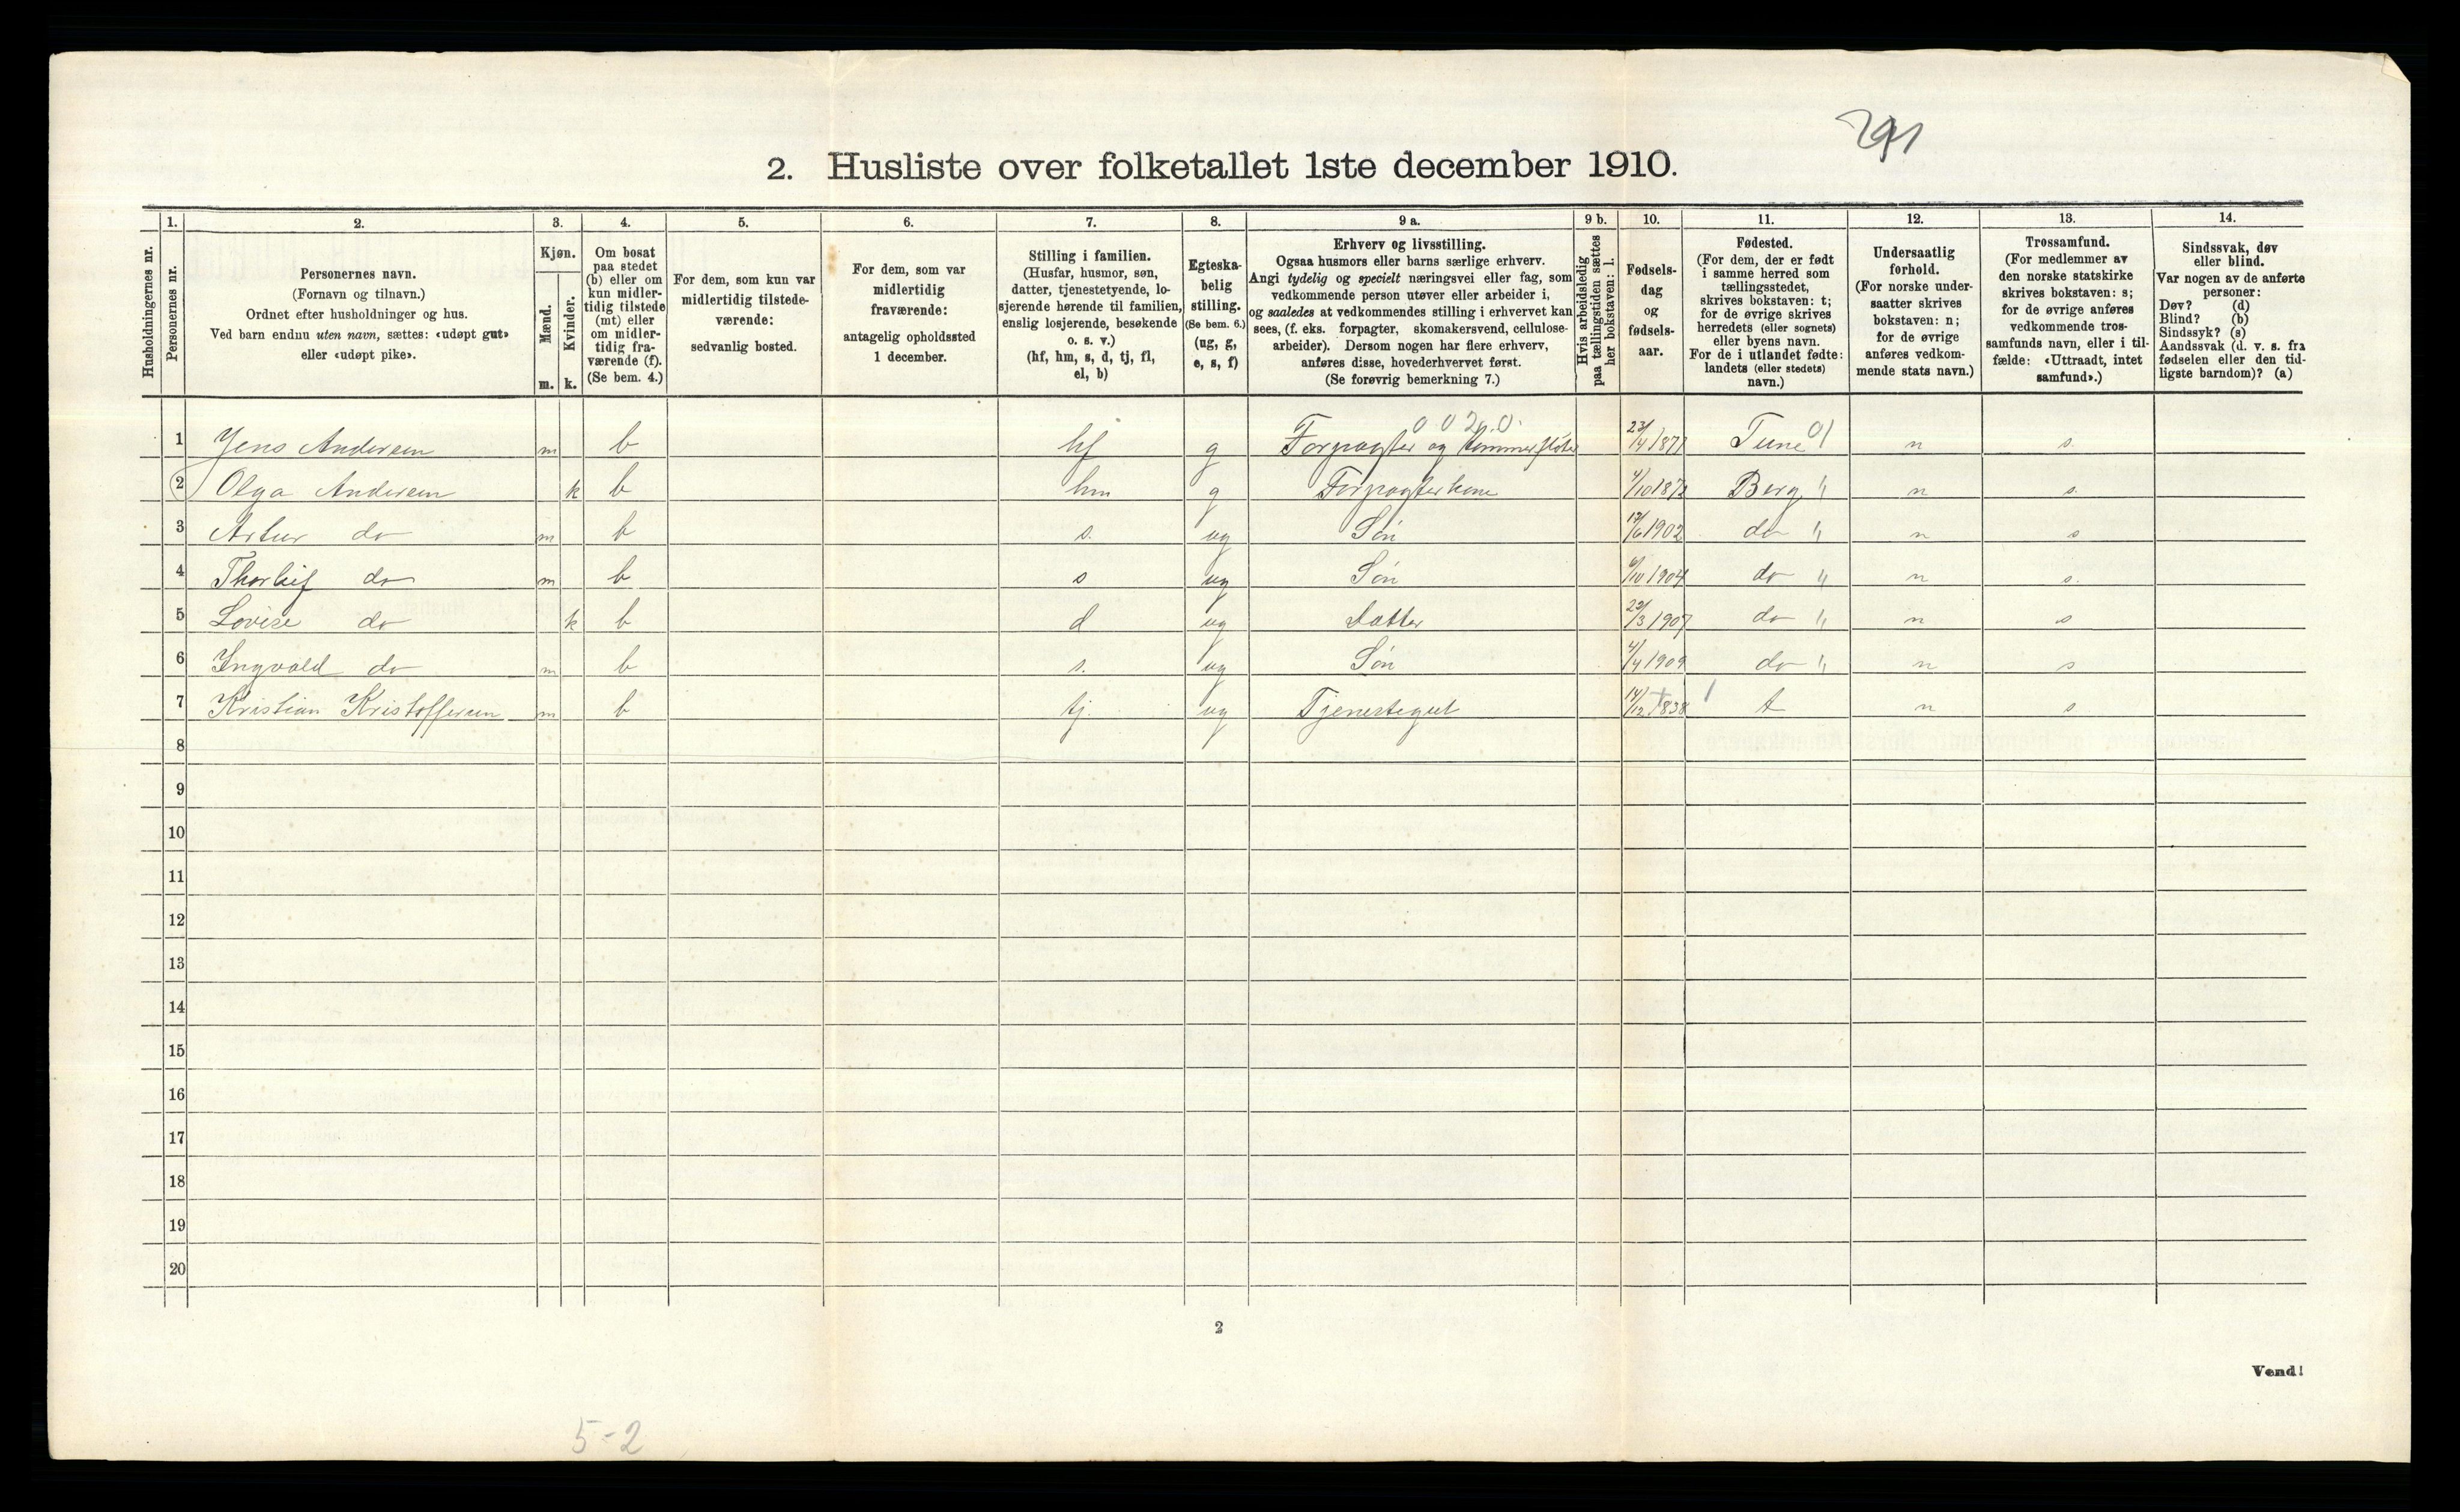 291
2. Husliste over folketallet 1ste december 1910.
Husholdningernes nr.
1.
Personernes nr.
2.
Personernes navn.
(Fornavn og tilnavn.)
Ordnet efter husholdninger og hus.
Ved barn endnu uten navn, sættes: «udøpt gut»
eller «udøpt pike».
3.
Kjøn.
Mænd.
Kvinder.
m. k.
4.
Om bosat
paa stedet
(b) eller om
kun midler-
tidig tilstede
(mt) eller
om midler-
tidig fra-
værende (f).
(Se bem. 4.)
5.
For dem, som kun var
midlertidig tilstede-
værende:
sedvanlig bosted.
6.
For dem, som var
midlertidig
fraværende:
antagelig opholdssted
1 december.
7.
Stilling i familien.
(Husfar, husmor, søn,
datter, tjenestetyende, lo-
sjerende hørende til familien,
enslig losjerende, besøkende
o. s. v.)
(hf, hm, s, d, tj, fl,
el, b)
8.
Egteska-
belig
stilling.
(Se bem. 6.)
(ug, g,
e, s, f)
9 a.
Erhverv og livsstilling.
Ogsaa husmors eller barns særlige erhverv.
Angi tydelig og specielt næringsvei eller fag, som
vedkommende person utøver eller arbeider i,
og saaledes at vedkommendes stilling i erhvervet kan
sees, (f. eks. forpagter, skomakersvend, cellulose-
arbeider). Dersom nogen har flere erhverv,
anføres disse, hovederhvervet først.
(Se forøvrig bemerkning 7.)
9 b.
Hvis arbeidsledig
paa tællingstiden sættes
her bokstaven: l.
10.
Fødsels-
dag
og
fødsels-
aar.
11.
Fødested.
(For dem, der er født
i samme herred som
tællingsstedet,
skrives bokstaven: t;
for de øvrige skrives
herredets (eller sognets)
eller byens navn.
For de i utlandet fødte:
landets (eller stedets)
navn.)
12.
Undersaatlig
forhold.
(For norske under-
saatter skrives
bokstaven: n;
for de øvrige
anføres vedkom-
mende stats navn.)
13.
Trossamfund.
(For medlemmer av
den norske statskirke
skrives bokstaven: s;
for de øvrige anføres
vedkommende tros-
samfunds navn, eller i til-
fælde: «Uttraadt, intet
samfund».)
14.
Sindssvak, døv
eller blind.
Var nogen av de anførte
personer:
Døv? (d)
Blind? (b)
Sindssyk? (s)
Aandssvak (d. v. s. fra
fødselen eller den tid-
ligste barndom)? (a)
1 Jens Andersen m b hf g Forpagter og tømmerfløter 23/4 1871 Tune 01 n s.
2 Olga Andersen k b hm g Forpagterkone Berg " n s.
3 Artur do m b s. ug Søn 17/6 1902 do " n s
4 Thorleif do m b s ug Søn 6/10 1904 do " n s.
5 Lovise do k b d ug Datter 29/3 1907 do " n s
6 Ingvald do m b s. ug Søn 4/4 1909 do " n s
7 Kristian Kristoffersen m b tj. ug Tjenestegut 14/12 1838 t n s
8
9
10
11
12
13
14
15
16
17
18
19
20
2
Vend!
5-2